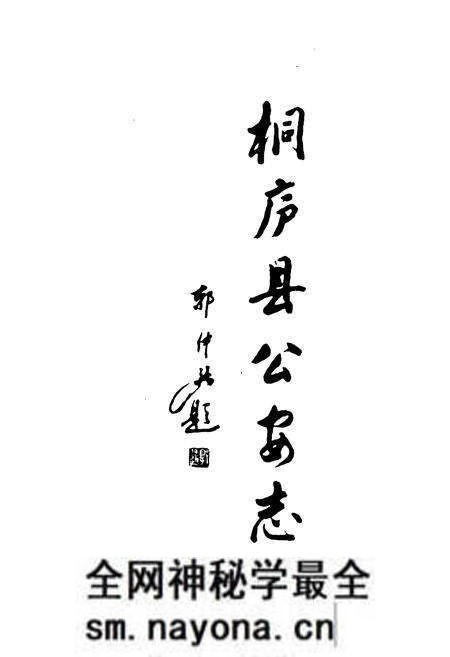 桐庐县公安志
郭仲题
全网神秘学最全
sm.nayona.cn